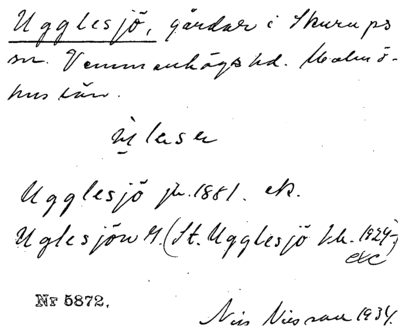 Ugglesjö, gårdar i Skurups
sn. Vemmenhögs hd. Malmö-
hus län.
Ugglesjö jb. 1881. ek.
Uglesjön G. (St. Ugglesjö kk. 1924)
etc
Nr 5872.
Nils Nilsson 1934.